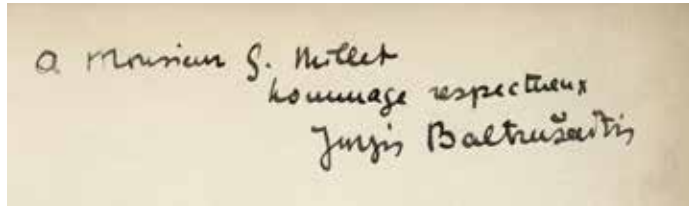 a Monsieur G. Millet
hommage respectueux
Jurgis Baltrušaitis